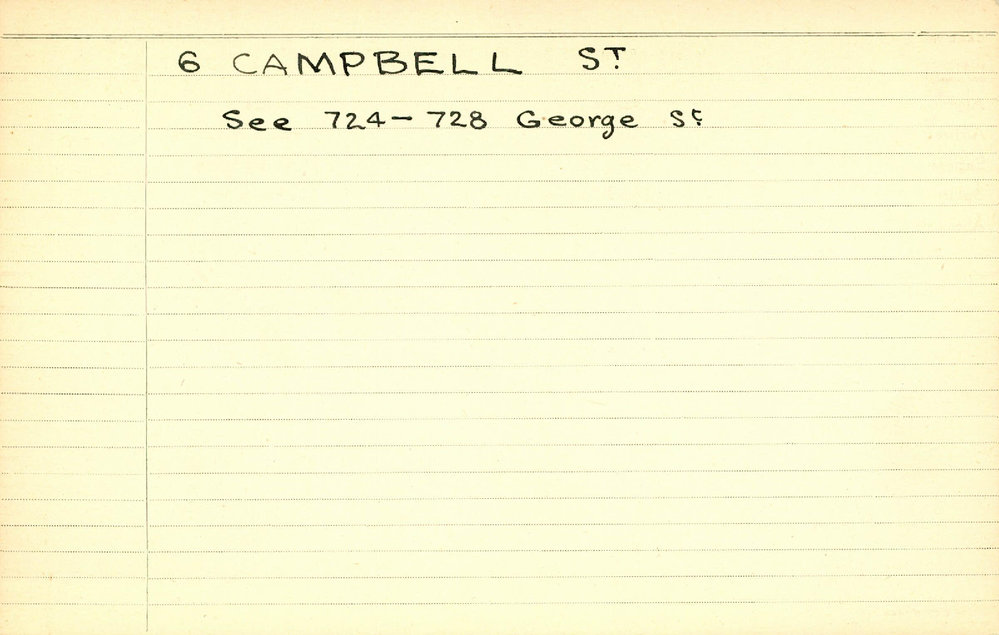 6 CAMPBELL ST
See 724-728 George St